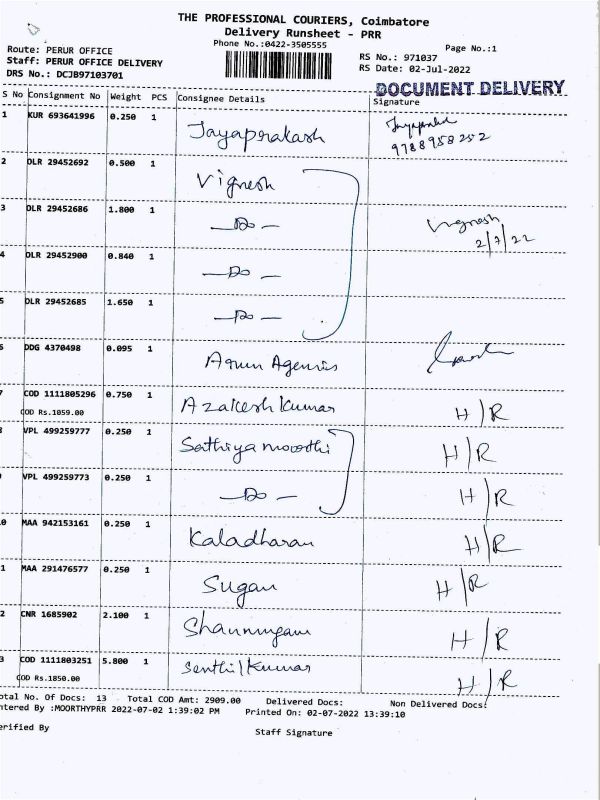 THE PROFESSIONAL COURIERS, Coimbatore
Delivery Runsheet - PRR
Phone No.:0422-3505555
Page No.:1
Route: PERUR OFFICE
RS No.: 971037
Staff: PERUR OFFICE DELIVERY
RS Date: 02-Jul-2022
DRS No.: DCJB97103701
DOCUMENT DELIVERY
S No Consignment No Weight PCS Consignee Details Signature
1 KUR 693641996 0.250 1 Jayaprakash
9788958252
2 DLR 29452692 0.500 1 Vignesh
3 DLR 29452686 1.800 1 -Do- Vignesh
2/7/22
4 DLR 29452900 0.840 1 -Do-
5 DLR 29452685 1.650 1 -Do-
6 DDG 4370498 0.095 1 Arun Agencies
7 COD 1111805296 0.750 1 Azakesh Kumar H/R
COD Rs.1059.00
VPL 499259777 0.250 1 Sathiya moorthi H/R
VPL 499259773 0.250 1 -Do- H/R
0 MAA 942153161 0.250 1 Kaladharan H/R
1 MAA 291476577 0.250 1 Sugan H/R
2 CNR 1685902 2.100 1 Shanmugam H/R
3 COD 1111803251 5.800 1 Senthil Kumar H/R
COD Rs.1850.00
otal No. Of Docs: 13 Total COD Amt: 2909.00 Delivered Docs: Non Delivered Docs:
ntered By :MOORTHYPRR 2022-07-02 1:39:02 PM Printed On: 02-07-2022 13:39:10
erified By
Staff Signature